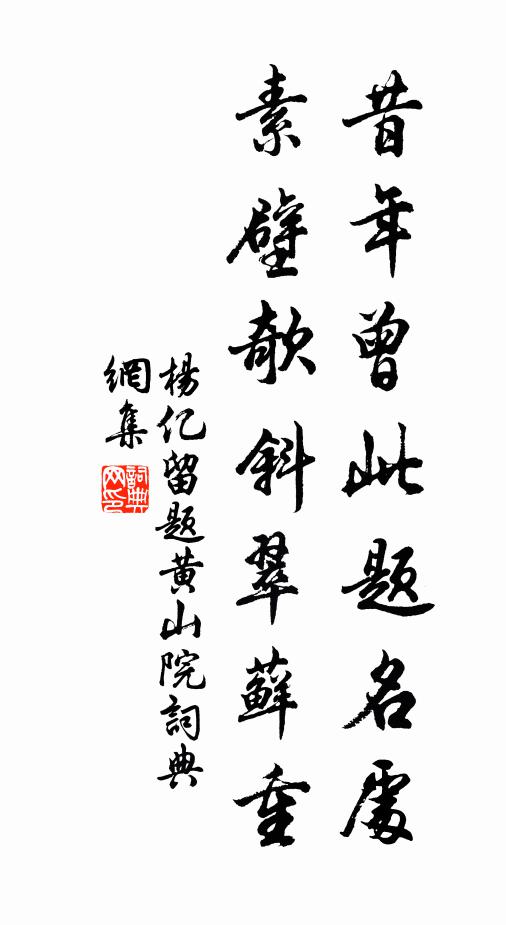 昔年曾此題名處
素壁欹斜翠蘚重
楊億留題黃山院詞典
網集
詞典網印